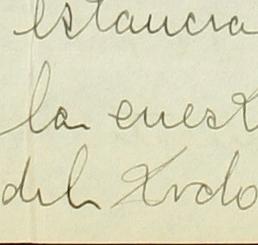 estancia
la cuest
del